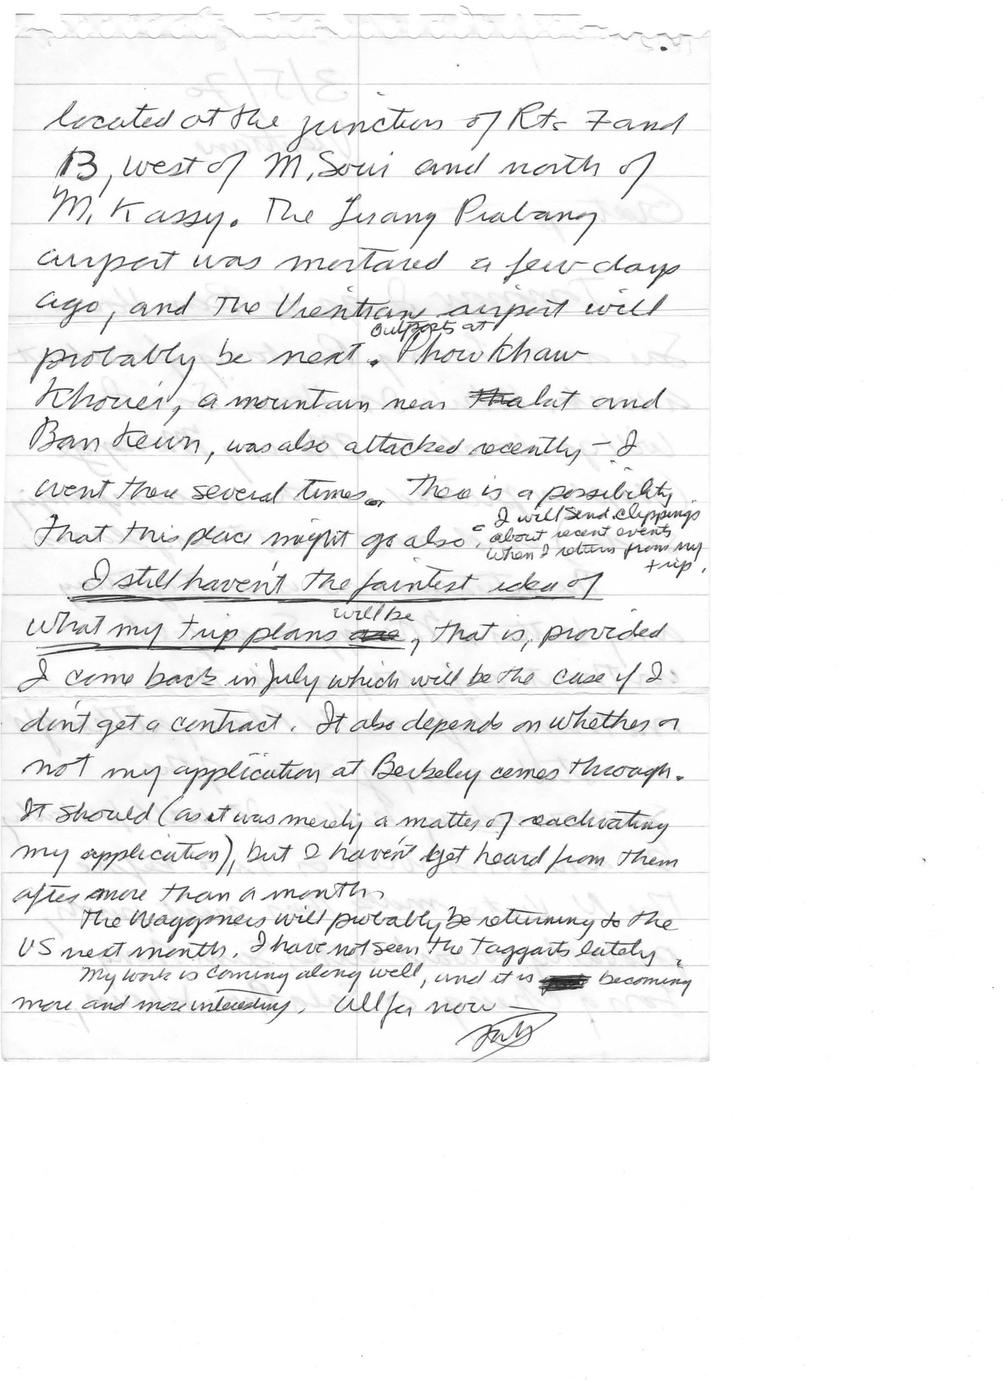 located at the junction of Rts 7 and
13, west of M. Soui and north of
M. Kassy. The Luang Prabang
airport was mortared a few days
ago, and the Vientiane airport will
probably be next. outposts at Phow Khaw
Khouei, a mountain near Thalat and
Ban Keun, was also attacked recently – I
went there several times. There is a possibility
that this place might go also. I will send clippings
about recent events
when I return from my
trip.
I still haven't the faintest idea of
what my trip plans will be, that is, provided
I come back in July which will be the case if I
don't get a contract. It also depends on whether or
not my application at Berkeley comes through.
It should (as it was merely a matter of reactivating
my application), but I haven't yet heard from them
after more than a month.
The Waggoners will probably be returning to the
US next month. I have not seen the Taggarts lately.
My work is coming along well, and it is becoming
more and more interesting. All for now –